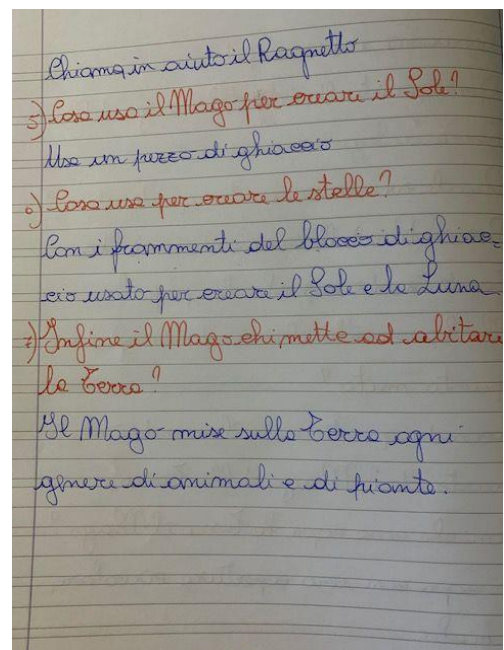 Chiama in aiuto il Ragnetto
5) Cosa usa il Mago per creare il Sole?
Usa un pezzo di ghiaccio
6) Cosa usa per creare le stelle?
Con i frammenti del blocco di ghiac=
cio usato per creare il Sole e la Luna.
7) Infine il Mago chi mette ad abitare
la Terra?
Il Mago mise sulla Terra ogni
genere di animali e di piante.